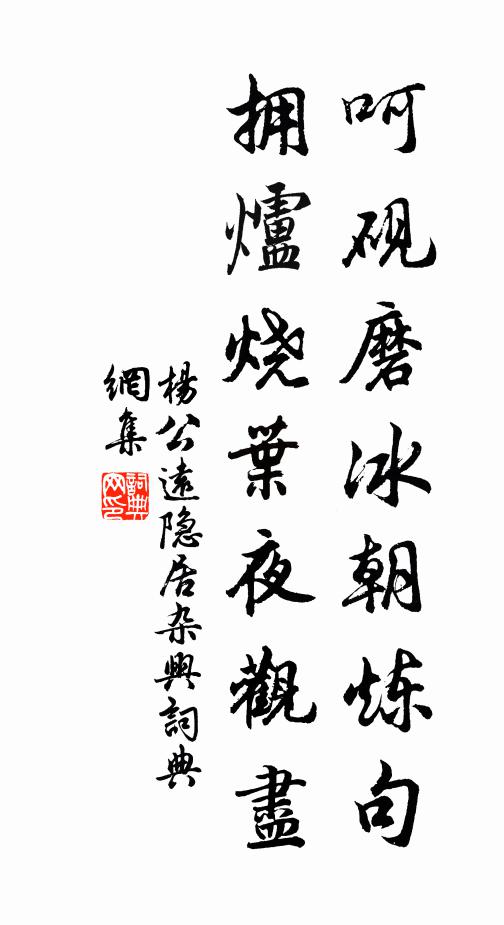 呵砚磨冰朝炼句
拥爐烧葉夜觀盡
楊公遠隐居杂興詞典
網集
詞典
网印